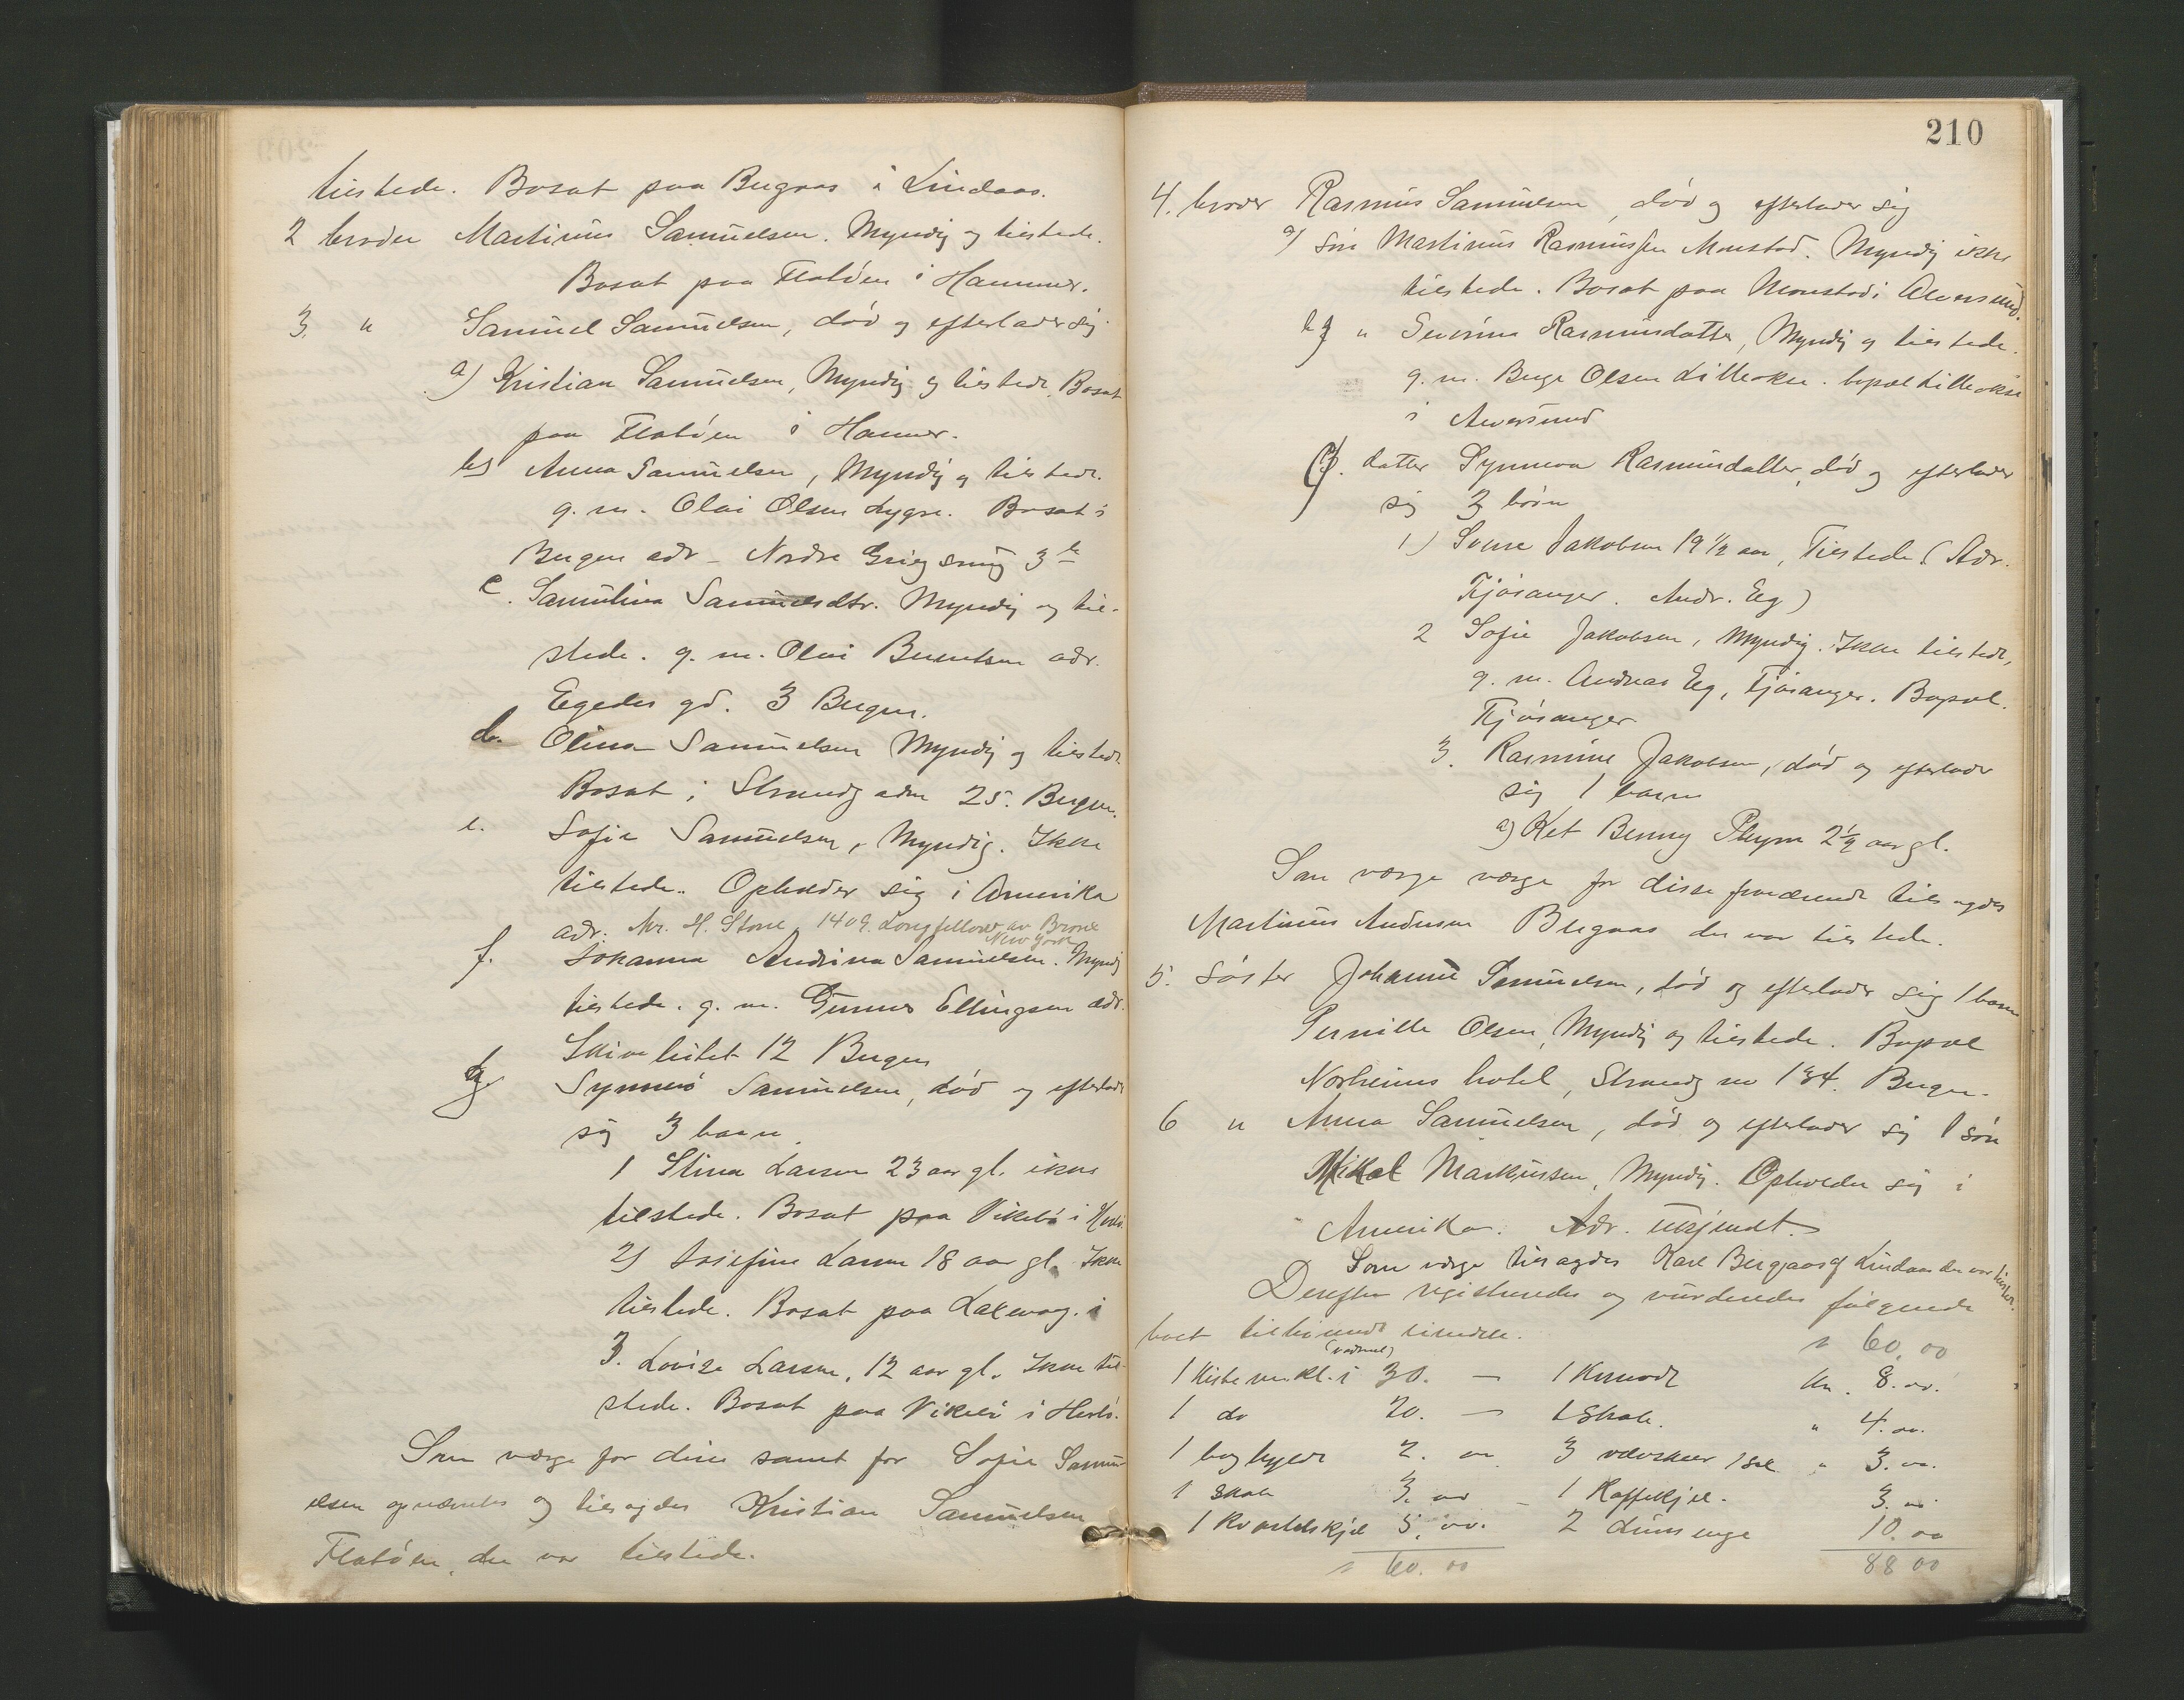 tilstede. Bosat paa Bergaas i Lindaas.
2 broder Martinus Samuelsen. Myndig og tilstede.
Bosat paa Flatöen i Hammer.
3. " Samuel Samuelsen, död og efterlader sig
a) Kristian Samuelsen, Myndig og tilstede. Bosat
paa Flatöen i Hamer.
b) Anna Samuelsen, Myndig og tilstede.
g. m. Olai Olsen Lygre. Bosat i
Bergen adr – Nordre Griegsmug 3
c. Samuline Samuelsdtr. Myndig og til-
stede. g. m. Olai Berentsen adr.
Egedes gd. 3 Bergen.
d. Olina Samuelsen Myndig og tilstede
Bosat i Strandg 25. Bergen.
e. Sofie Samuelsen, Myndig. Ikke
tilstede. Opholder sig i Amerika
adr. Mr. H. Stone, 1409. Longfellow av Bronx
New York
f. Johanna Andrina Samuelsen. Myndig
tilstede. g. m. Gunnar Ellingsen adr.
Skivebutet 12 Bergen
g. Synneve Samuelsen, död og efterlader
sig 3 barn.
1 Stina Larsen 23 aar gl. ikke
tilstede. Bosat paa Vikebö i Herlö.
2) Josefine Larsen 18 aar gl. Ikke
tilstede. Bosat paa Laxevaag. i
3. Lovise Larsen, 12 aar gl. Ikke til-
stede. Bosat paa Vikebö i Herlö.
Som værge for disse samt for Sofie Samu-
elsen opnævntes og tilsagdes Kristian Samuelsen
Flatöen, der var tilstede.
210
4. broder Rasmus Samuelsen, död og efterlader sig
a) sön Martinus Rasmussen Monstad. Myndig ikke
tilstede. Bosat paa Monstad i Alversund.
b) " Severine Rasmusdatter, Myndig og tilstede.
g. m. Berge Olsen Lilleoxe. bopæl Lilleoxe
i Alversund
c). datter Synneva Rasmusdatter, död og efterlader
sig 3 börn
1) Sverre Jakobsen 19 1/2 aar, Tilstede (Adr.
Fjösanger. Andr. Eeg)
2 Sofie Jakobsen, Myndig. Ikke tilstede,
g. m. Andreas Eeg, Fjösanger. Bopæl.
Fjösanger
3. Rasmine Jakobsen, död og efterlader
sig 1 barn
a) Ket Benny 2 1/2 aar gl.
Som værge værge for disse fraværende tilsagdes
Martinus Andersen Bergaas der var tilstede.
5. Söster Johanne Samuelsen, död og efterlader sig 1 barn
Pernille Olsen, Myndig og tilstede. Bopæl
Norheims hotel, Strandg no 134. Bergen.
6 " Anna Samuelsen, död og efterlader sig 1 sön
Mikal Markussen, Myndig. Opholder sig i
Amerika. Adr. ukjendt.
Som værge tilsagdes Karl Bergaas af Lindaas der var tilstede.
Derefter registreredes og vurderedes fölgende
boet tilhörende eiendele. " 60,00
1 kiste m. kl. i 30. — 1 Komode Kr. 8.00.
1 do 20. — 1 Skab. " 4.00.
1 boghylde 2. 00 3 vævskeer 1 sæl " 3.00.
1 skab 3.00 – 1 Kaffekjel. 3.00
1 kvartelskjel 5.00. 2 dunsenge 10.00
" 60.00 88 00